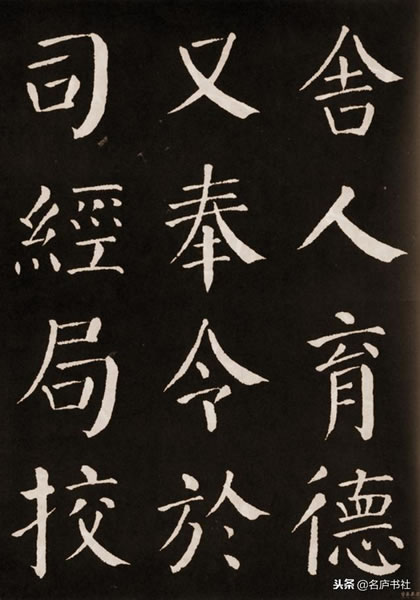 舍人育德
又奉令於
司經局挍
头条@名庐书社